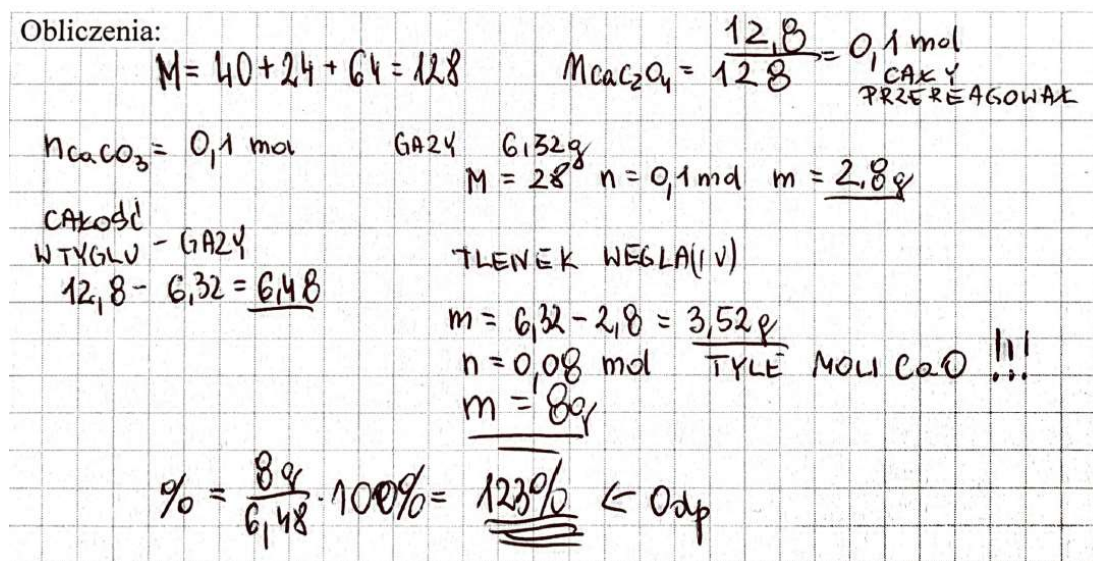 Obliczenia:
M = 40 + 24 + 64 = 128
n CaC₂O₄ = 12,8 / 128 = 0,1 mol
CAŁY
PRZEREAGOWAŁ
n CaCO₃ = 0,1 mol
GAZY 6,32g
M = 28 n = 0,1 mol m = 2,8g
CAŁOŚĆ
W TYGLU - GAZY
12,8 - 6,32 = 6,48
TLENEK WEGLA(IV)
m = 6,32 - 2,8 = 3,52g
n = 0,08 mol TYLE MOLI CaO !!!
m = 8g
% = 8g / 6,48 · 100% = 123% ← Odp